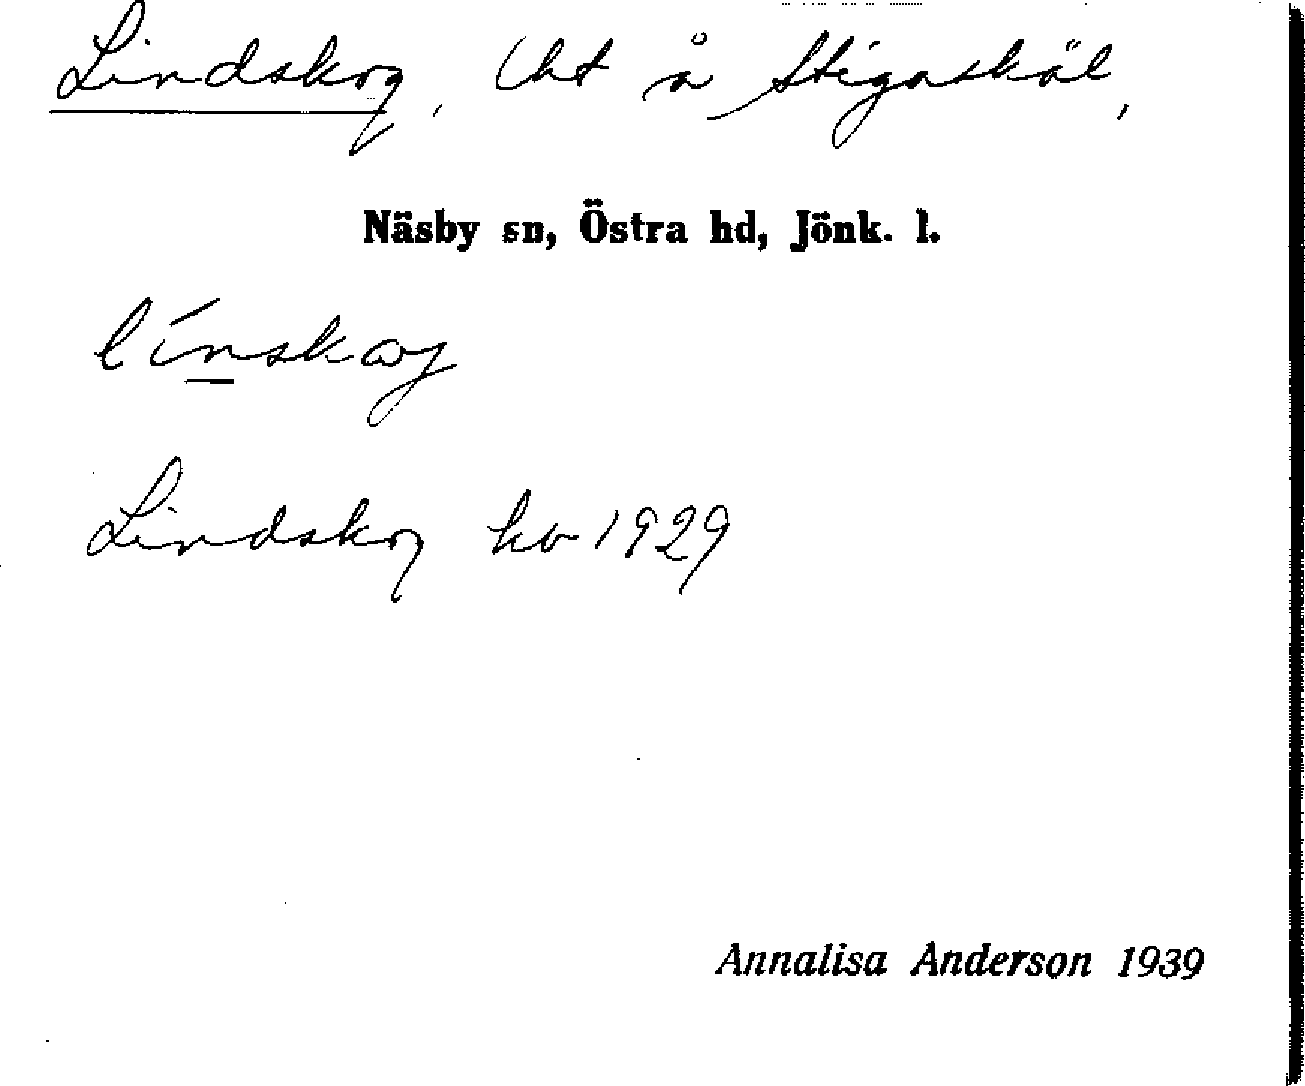 Lindskog, lht å Stigaskäl,
Näsby sn, Östra hd, Jönk. l.
línskωg
Lindskog hv 1929
Annalisa Anderson 1939